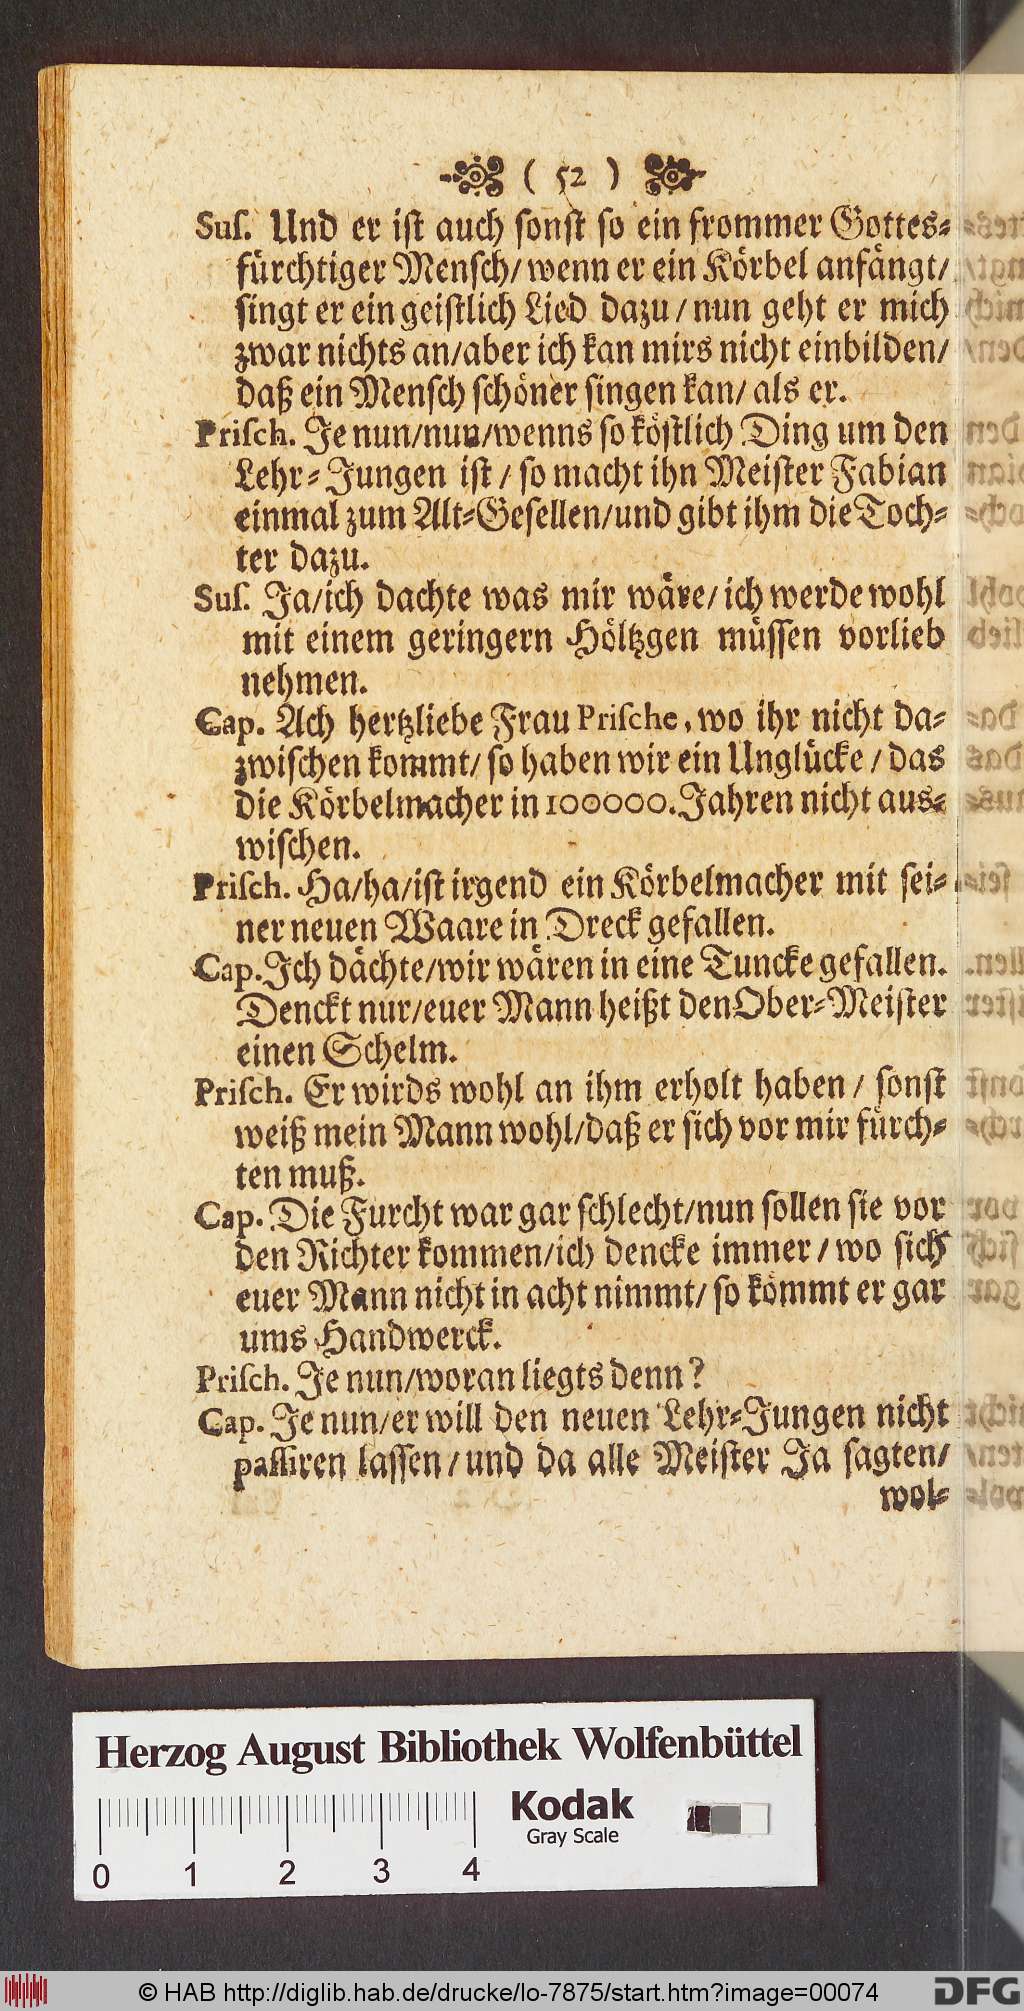 ( 52 )
Suſ. Und er iſt auch ſonſt ſo ein frommer Gottes-
fürchtiger Menſch/ wenn er ein Körbel anfängt/
ſingt er ein geiſtlich Lied dazu / nun geht er mich
zwar nichts an/aber ich kan mirs nicht einbilden/
daß ein Menſch ſchöner ſingen kan/ als er.
Priſch. Je nun/nun/wenns ſo köſtlich Ding um den
Lehr-Jungen iſt / ſo macht ihn Meiſter Fabian
einmal zum Alt-Geſellen/und gibt ihm die Toch-
ter dazu.
Suſ. Ja/ich dachte was mir wäre/ ich werde wohl
mit einem geringern Höltzgen müſſen vorlieb
nehmen.
Cap. Ach hertzliebe Frau Priſche, wo ihr nicht da-
zwiſchen kommt/ ſo haben wir ein Unglücke / das
die Körbelmacher in 100000. Jahren nicht aus-
wiſchen.
Priſch. Ha/ha/iſt irgend ein Körbelmacher mit ſei-
ner neuen Waare in Dreck gefallen.
Cap. Ich dächte/wir wären in eine Tuncke gefallen.
Denckt nur/euer Mann heißt den Ober-Meiſter
einen Schelm.
Priſch. Er wirds wohl an ihm erholt haben / ſonſt
weiß mein Mann wohl/daß er ſich vor mir fürch-
ten muß.
Cap. Die Furcht war gar ſchlecht/nun ſollen ſie vor
den Richter kommen/ich dencke immer / wo ſich
euer Mann nicht in acht nimmt/ ſo kömmt er gar
ums Handwerck.
Priſch. Je nun/woran liegts denn?
Cap. Je nun/er will den neuen Lehr-Jungen nicht
paſſiren laſſen / und da alle Meiſter Ja ſagten/
wol-
Herzog August Bibliothek Wolfenbüttel
Kodak
Gray Scale
0 1 2 3 4
© HAB http://diglib.hab.de/drucke/lo-7875/start.htm?image=00074
DFG